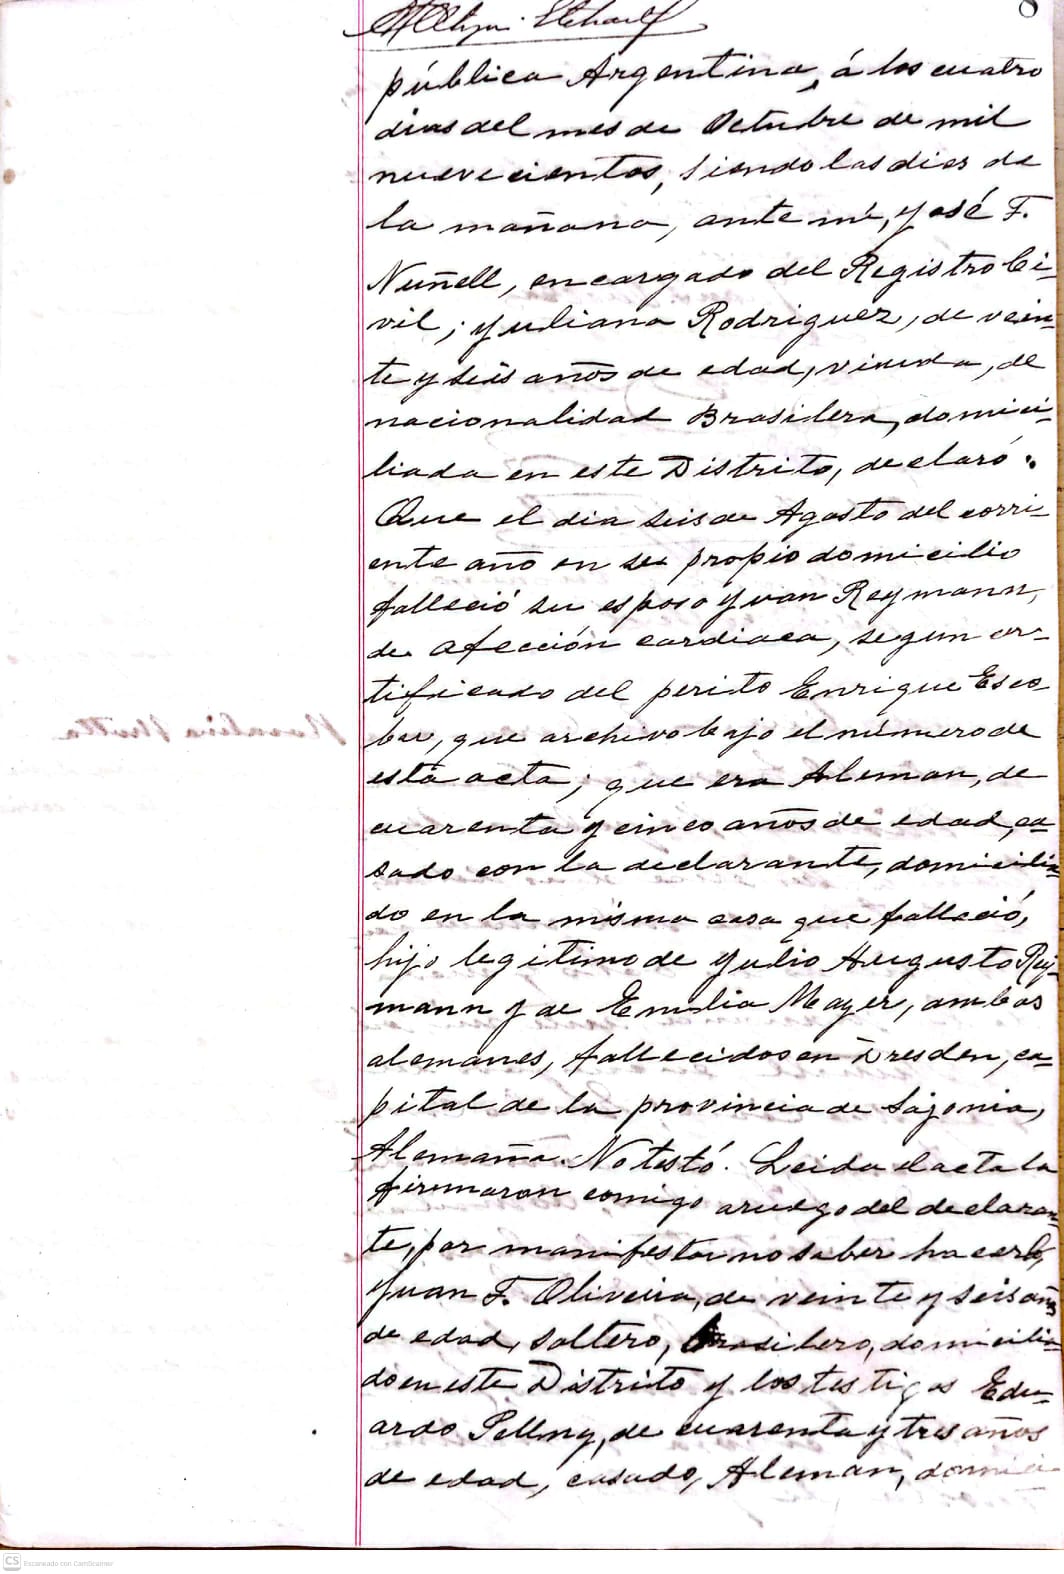 8
pública Argentina, á los cuatro
dias del mes de Octubre de mil
nuevecientos, siendo las dies de
la mañana, ante mi, José F.
Nuñell, encargado del Registro Ci-
vil; Juliana Rodriguez, de vein-
te y seis años de edad, viuda, de
nacionalidad Brasilera, domici-
liada en este Distrito, declaró:
Que el dia seis de Agosto del corri-
ente año en su propio domicilio
falleció su esposo Juan Reymann,
de afección cardiaca, segun cer-
tificado del perito Enrique Esco
bar, que archivo bajo el número de
esta acta; que era Aleman, de
cuarenta y cinco años de edad, ca-
sado con la declarante, domicilia-
do en la misma casa que falleció,
hijo legitimo de Julio Augusto Rey-
mann y de Emilia Mayer, ambos
alemanes, fallecidos en Dresden, ca-
pital de la provincia de Sajonia,
Alemaña. No testó. Leida el acta la
firmaron comigo a ruego del declaran-
te, por manifestar no saber hacerlo,
Juan F. Oliveira, de veinte y seis años
de edad, soltero, brasilero, domicilia-
do en este Distrito y los testigos Edu-
ardo Pelling, de cuarenta y tres años
de edad, casado, Aleman, domici-
CS Escaneado con CamScanner